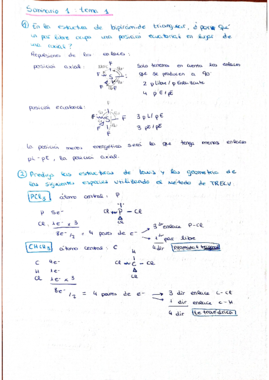 Seminario 1 : tema 1
① En las estructuras de bipirámide triangular, ¿por qué
un par libre ocupa una posición ecuatorial en lugar de
una axial?
Repulsiones de los enlaces:
posición axial:
Solo teniendo en cuenta los enlaces
que se producen a 90
2 p libre / p
4 p E / pE
posición ecuatorial:
3 pL / pE
3 pE / pE
la posición menos energética será la que tenga menos enlaces
pL - pE, la posición axial.
② Predigo las estructuras de Lewis y la geometría de
las siguientes especies utilizando el método de TRELV.
PCl3 átomo central: P
P 5e-
Cl - P - Cl
Cl
3 dir enlace P-Cl
Cl 1e- x 3
1 par libre
8e- /2 = 4 pares de e-
4 dir
CHCl3 átomo central: C
H
C 4e-
Cl - C - Cl
H 1e-
Cl
3 dir enlace C-Cl
Cl 1e- x 3
1 dir enlace C-H
8e- /2 = 4 pares de e-
4 dir tetraédrica